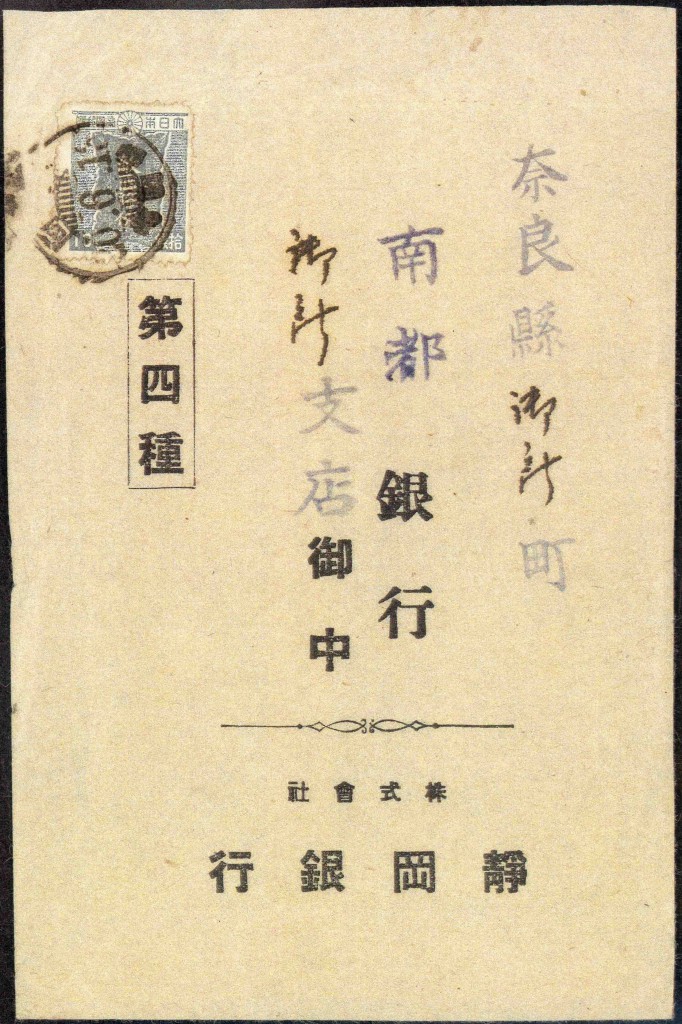 奈良縣御所町
南都銀行
御所支店御中
第四種
株式會社
靜岡銀行
大日本